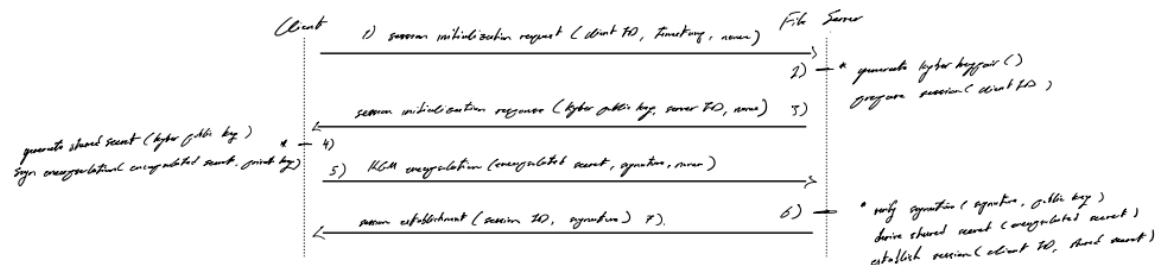 Client
File Server
1) session initialization request (client ID, timestamp, nonce)
2) * generate kyber keypair()
prepare session(client ID)
session initialization response (kyber public key, server ID, nonce) 3)
generate shared secret (kyber public key)
* 4)
sign encapsulation(encapsulated secret, private key)
5) KEM encapsulation (encapsulated secret, signature, nonce)
6) * verify signature(signature, public key)
derive shared secret (encapsulated secret)
establish session(client ID, shared secret)
session establishment (session ID, signature) 7)